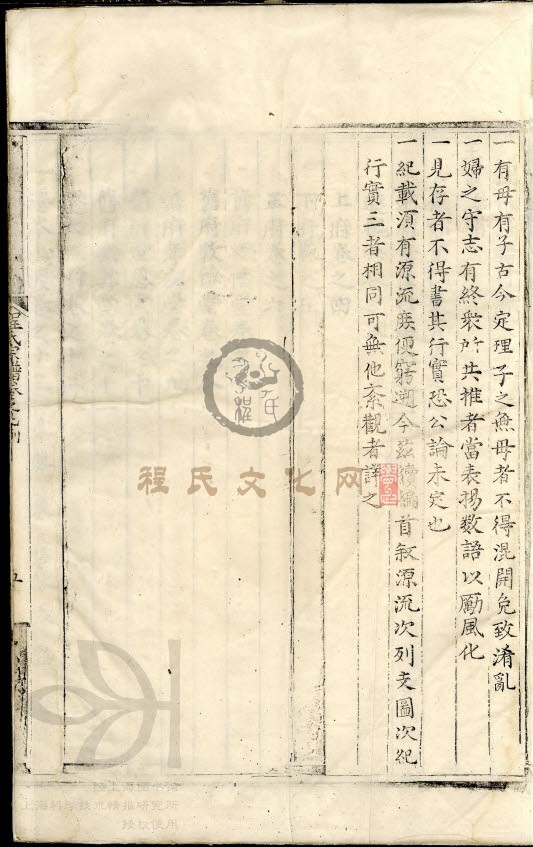 一有母有子古今定理子之無母者不得混開免致淆亂
一婦之守志有終衆所共推者當表揚数語以勵風化
一見存者不得書其行實恐公論未定也
一紀載須有源流庶便窮遡今茲續編首叙源流次列支圖次紀
行實三者相同可無他紊觀者詳之
程氏宗譜
例
程氏文化网
上海图书馆
上海科学技术情报研究所
授权使用